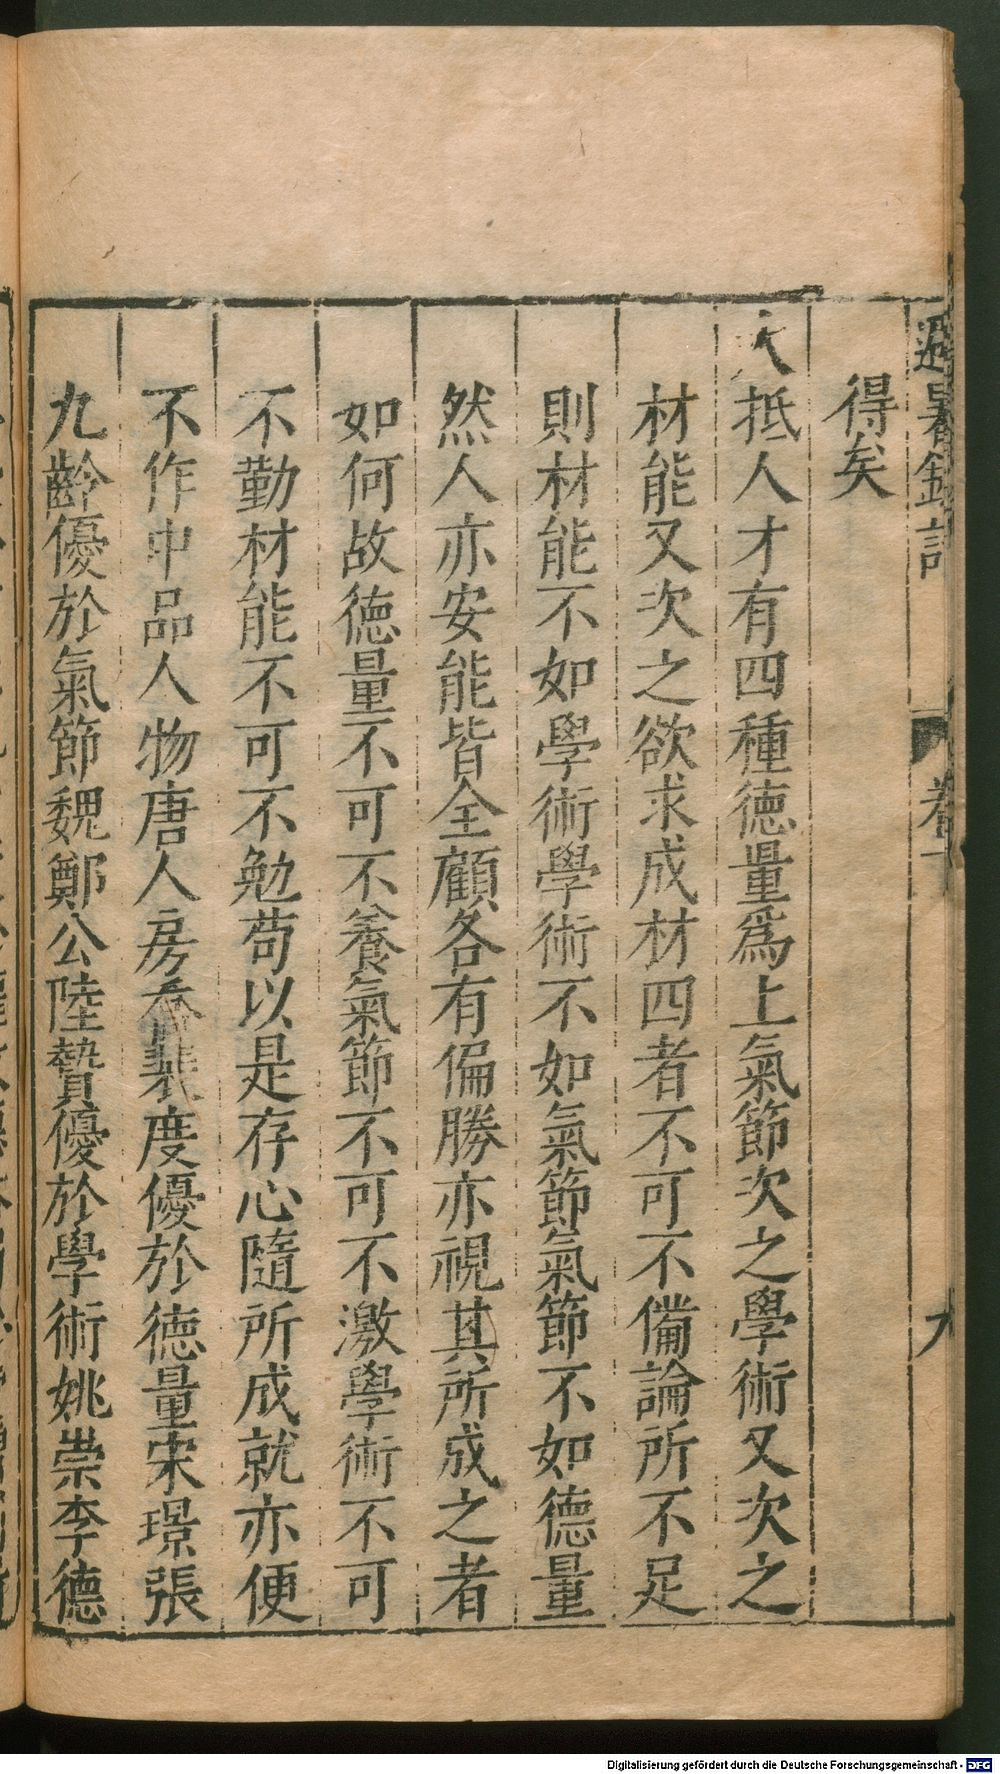 得矣
大抵人才有四種德量爲上氣節次之學術又次之
材能又次之欲求成材四者不可不備論所不足
則材能不如學術學術不如氣節氣節不如德量
然人亦安能皆全顧各有偏勝亦視其所成之者
如何故德量不可不養氣節不可不激學術不可
不勤材能不可不勉苟以是存心隨所成就亦便
不作中品人物唐人房喬裴度優於德量宋璟張
九齡優於氣節魏鄭公陸贄優於學術姚崇李德
卷
Digitalisierung gefördert durch die Deutsche Forschungsgemeinschaft - DFG